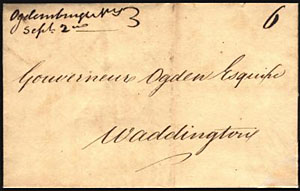 Ogdensburgh N.Y. 3 6
Sept. 2nd
Gouverneur Ogden Esquire
Waddington